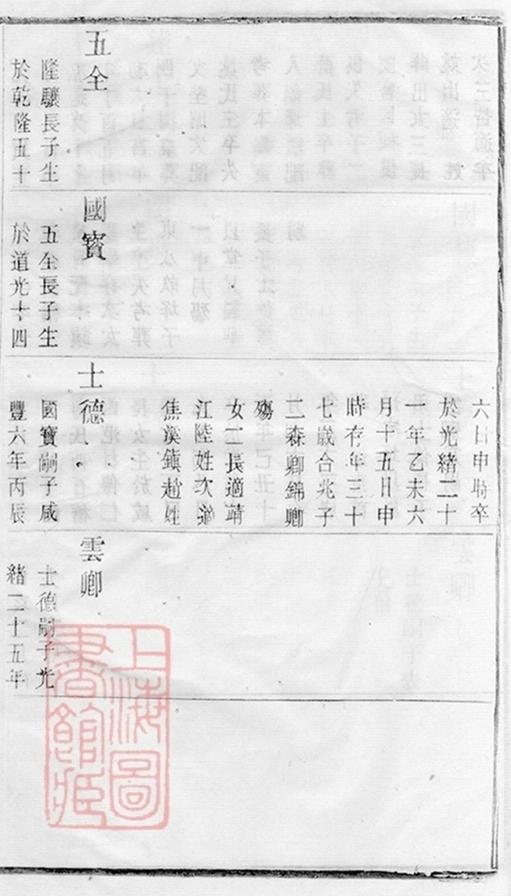 五全
隆驤長子生
於乾隆五十
國寶
五全長子生
於道光十四
六日申時卒
於光緒二十
一年乙未六
月十五日申
時存年三十
七歲合兆子
二森卿錦卿
殤
女二長適靖
江陸姓次適
焦溪鎮趙姓
士德
國寶嗣子咸
豐六年丙辰
雲卿
士德嗣子光
緒二十五年
上海圖
書館藏